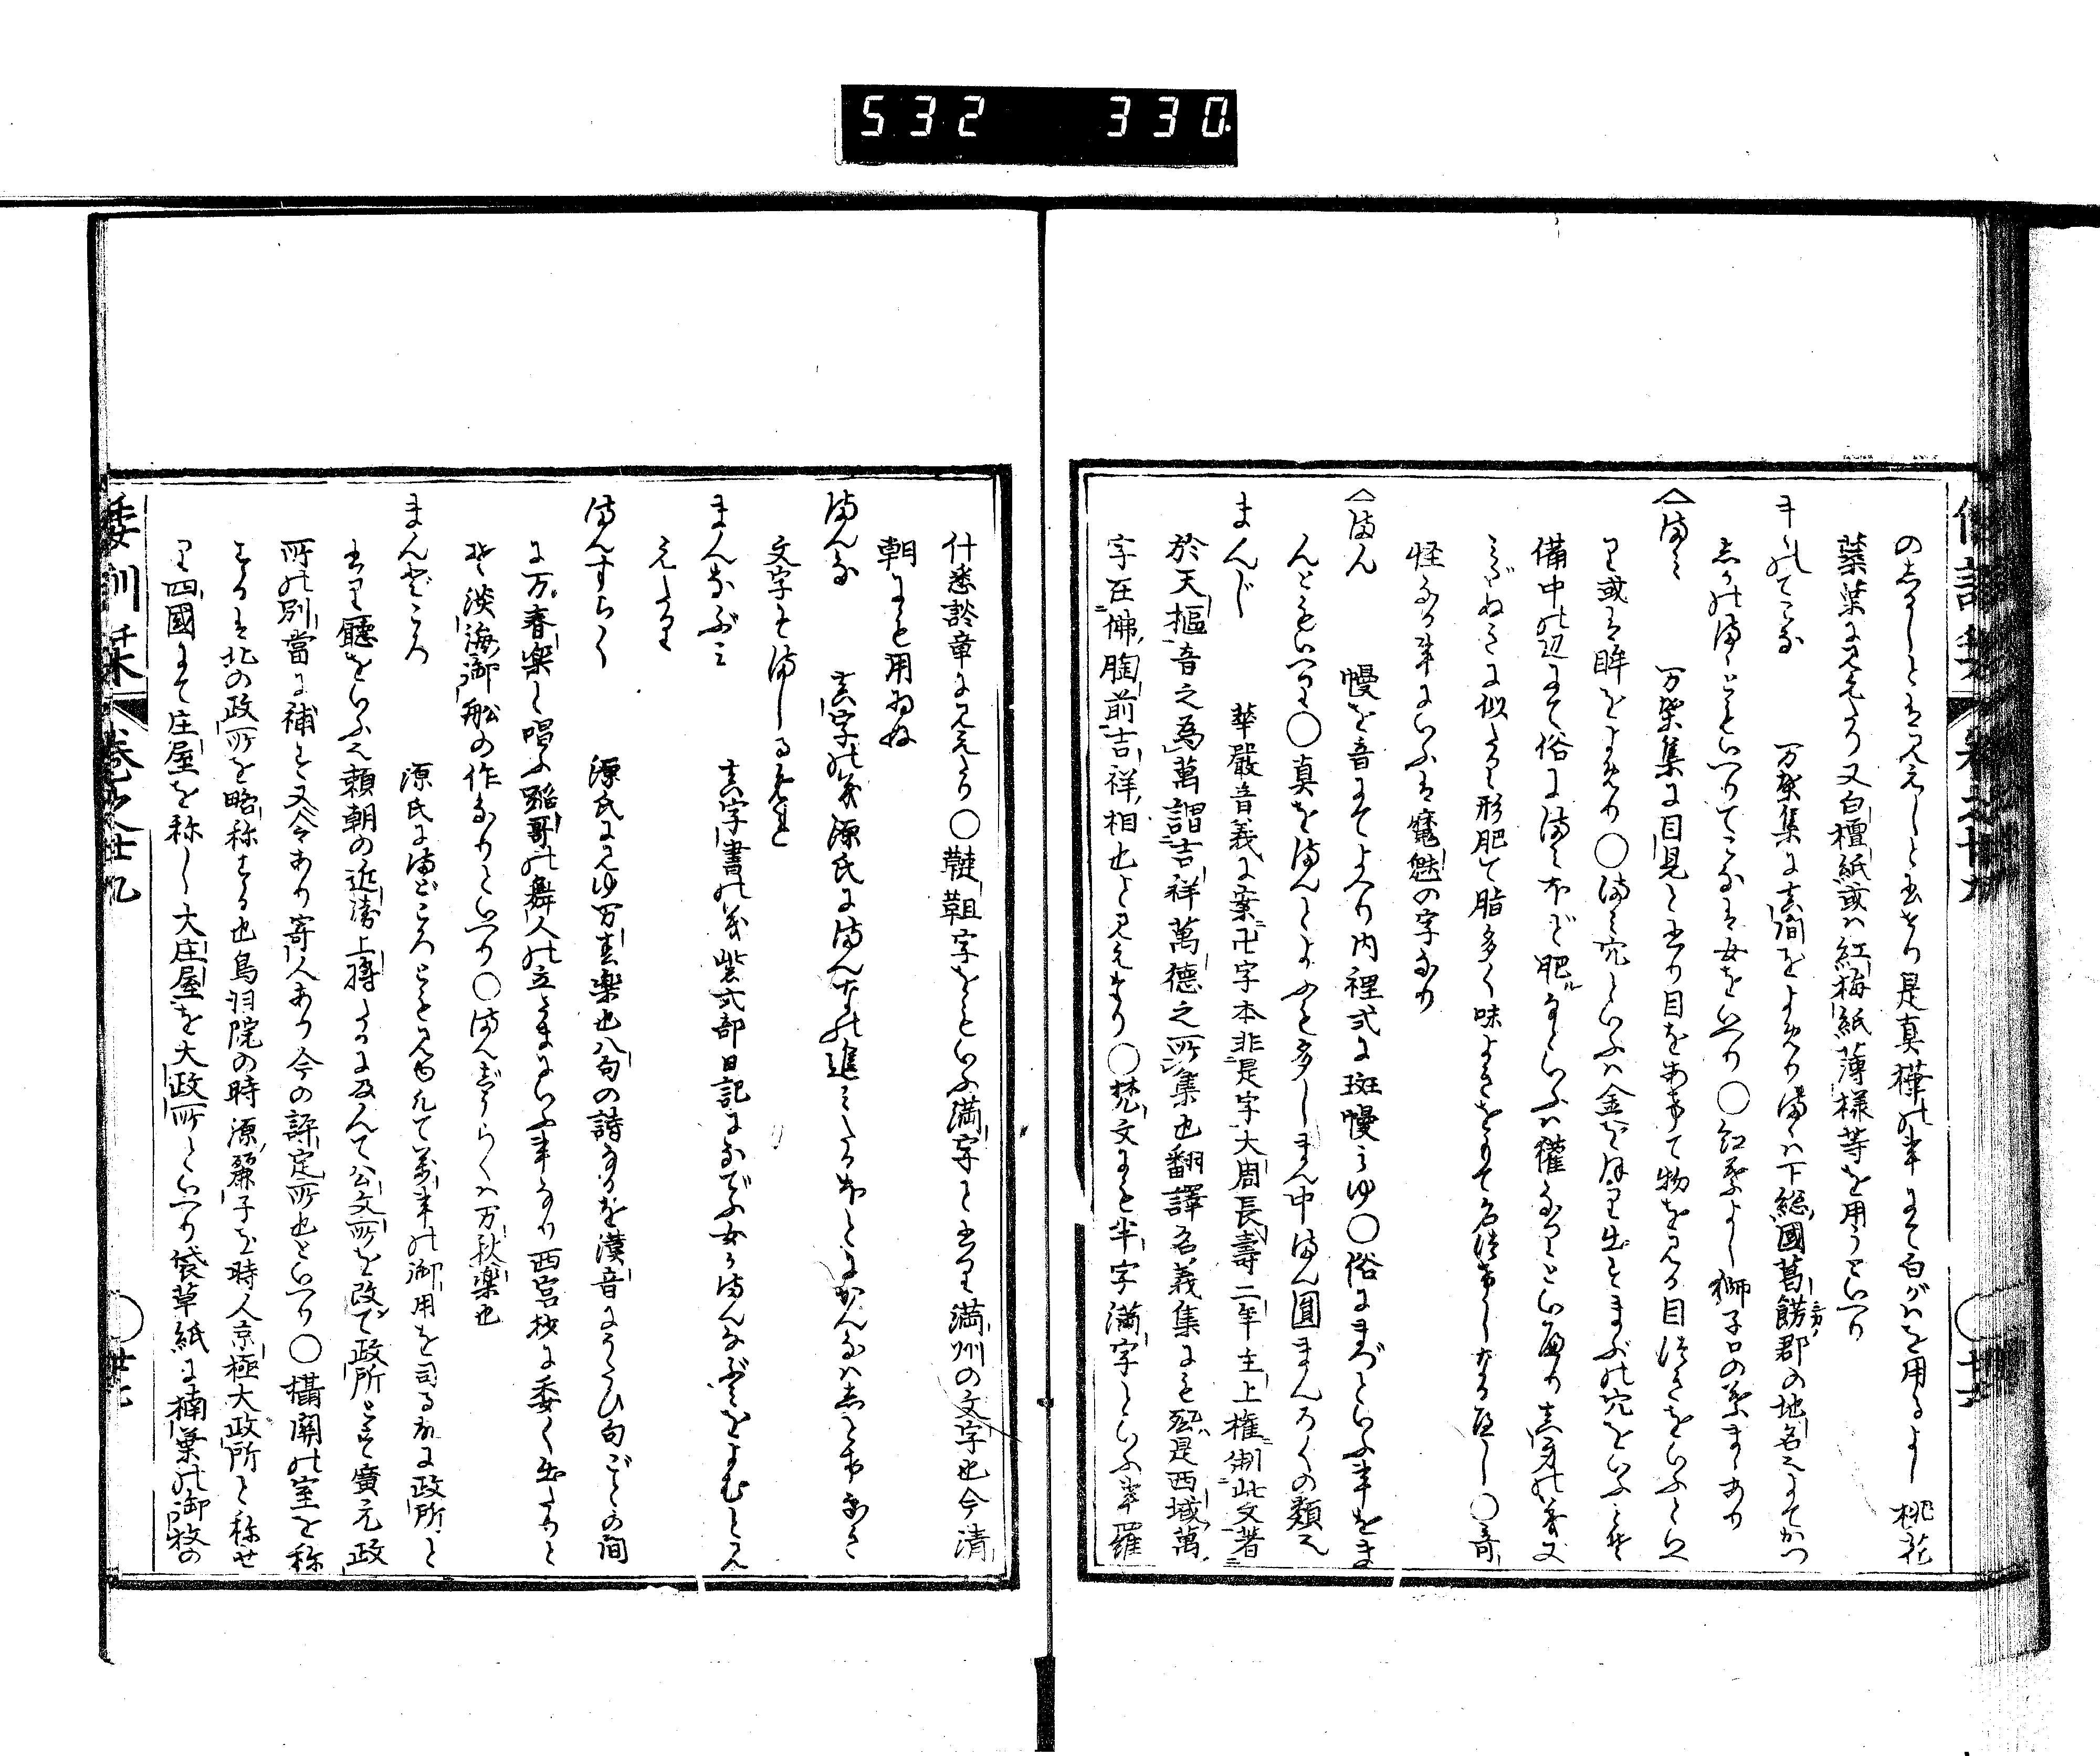 532 330
のしるしとはみえしと書せり是真樺の事にて白かはを用るよし 桃花
蘂葉に見えたり又白檀紙或ハ紅梅紙薄様等を用うといへり
まゝのてこな 万葉集に真間をよめりまゝハ下総國葛餝郡の地名也よてかつ
しかのまゝともいへりてこなは女をいへり○紅葉よし獅子口の葉まゝあり
〈まみ 万葉集に目見と書り目をあけて物をみる目つきをいふといへ
り或は眸をよめり○まみ穴といふハ金をほり出すまぶの穴をいふとぞ
備中の辺にて俗にまみほど肥るといふハ貛なりといへり真身の義
たぬきに似たり形肥て脂多く味よきをもて名つけしなるべし○奇
怪なる事にいふは魔魅の字なり
〈まん 幔を音にてよへり内裡式に斑幔みゆ○俗にまがといふ事をま
んともいへり○真をまんとよふも多しまん中まん圓まんろくの類也
まんじ 華嚴音義に案卍字本非是字大周長壽二年主上権制此文著
於天樞音之為萬謂吉祥萬德之所集也翻譯名義集にも是西域萬
字在佛胸前吉祥相也と見えたり○梵文にも半字満字といふ事羅
什悉談章にみえたり○韃靼字をもいふ満字と書り満州の文字也今清
朝にも用ゐぬ
まんな 真字の義源氏にまんなの進みたるほとにかんなハしどけなき
文字をましるめれ
まんなぶミ 真字書の義紫式部日記になでふ女かまんなぶみをよむとみ
えたり
まんすらく 源氏にみゆ万春楽也八句の詩なるを漢音にうたひ句ごとの間
に万春楽と唱ふ踏哥の舞人の立さまにいふ事なり西宮抄に委く出たりと
そ淡海御船の作なりといへり○まんずらくハ万秋楽也
まんどころ 源氏にまどころともみゆ凡て万事の御用を司る所に政所と
書り廳をいふ也頼朝の近衛上将たるに及んて公文所を改て政所とす廣元政
所の別當に補す又令あり寄人あり今の評定所也といへり○攝關の室を称
するは北の政所を略称する也鳥羽院の時源麗子を時人京極大政所と称せ
り四國にて庄屋を称し大庄屋を大政所といへり袋草紙に楠葉の御牧の
倭訓栞 巻之廿九